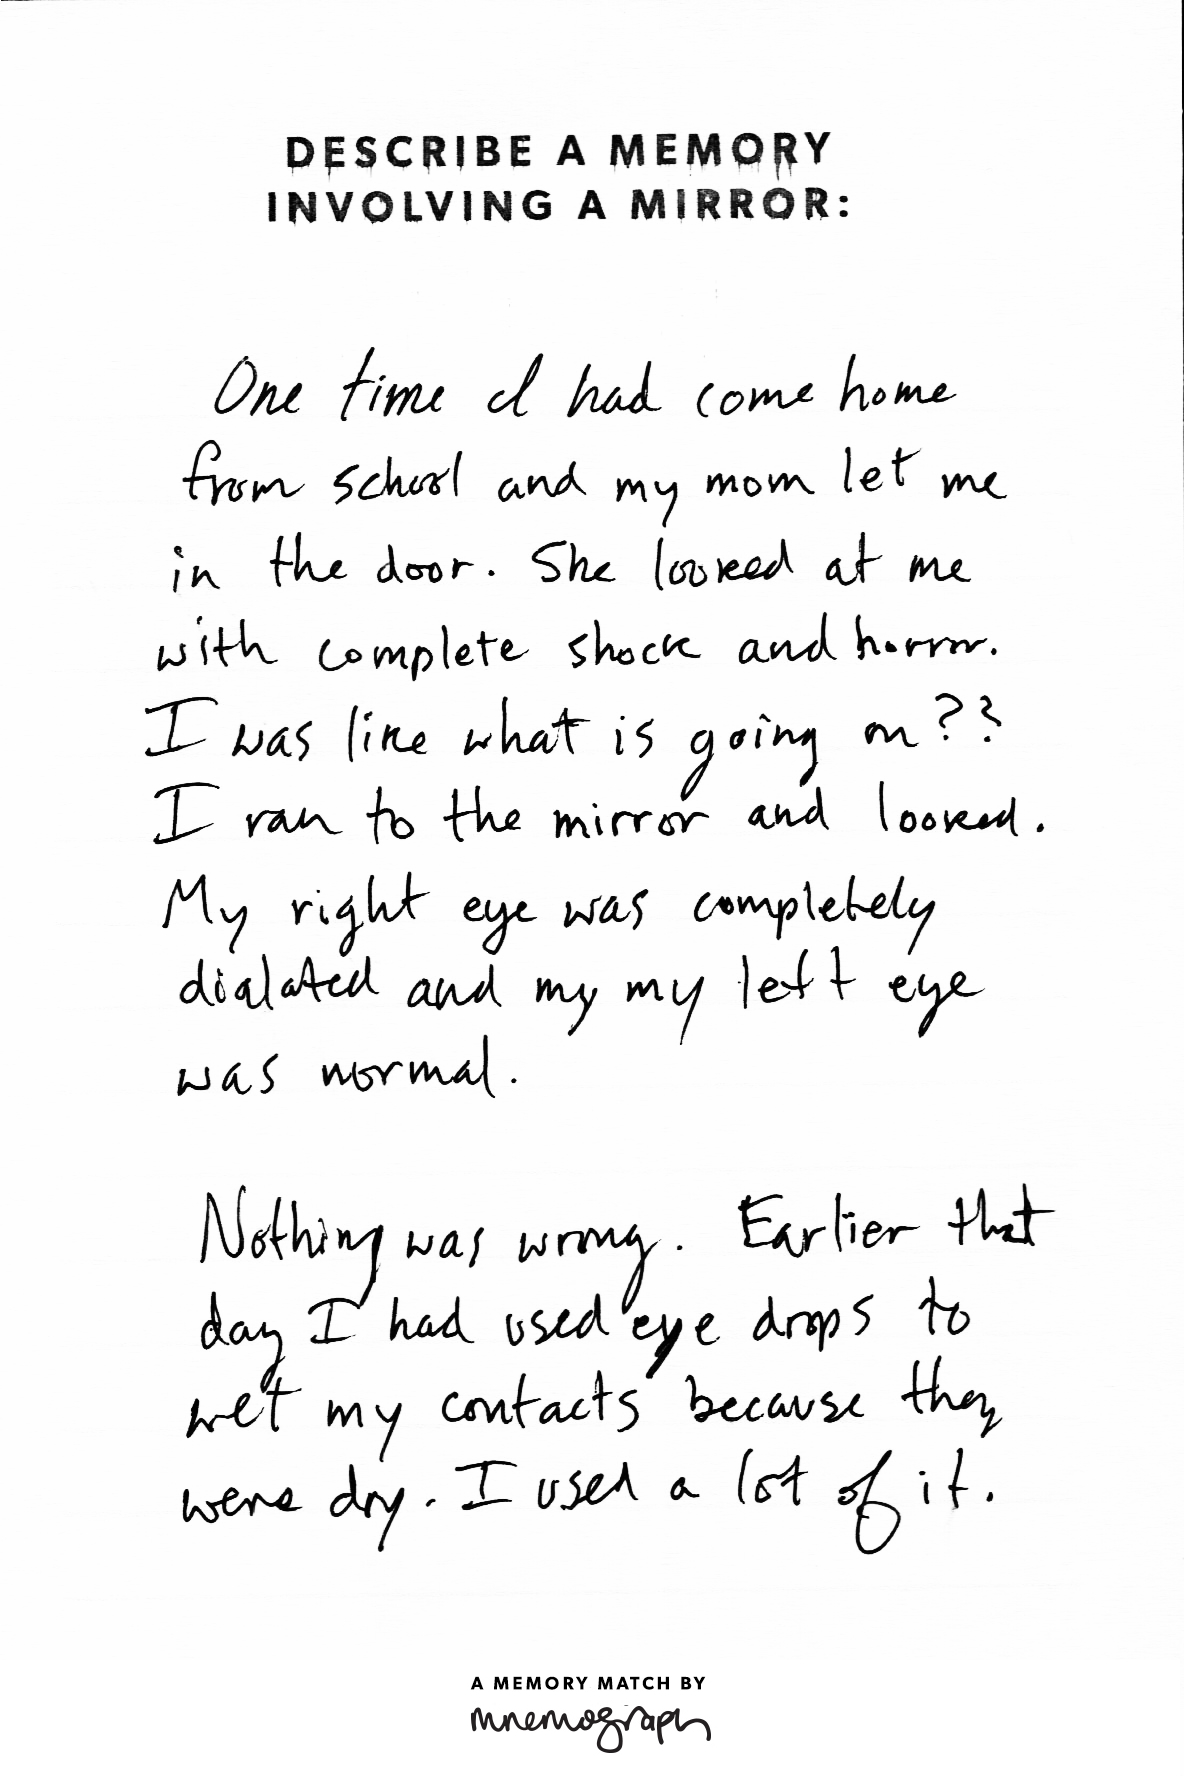 DESCRIBE A MEMORY
INVOLVING A MIRROR:
One time I had come home
from school and my mom let me
in the door. She looked at me
with complete shock and horror.
I was like what is going on??
I ran to the mirror and looked.
My right eye was completely
dialated and my my left eye
was normal.
Nothing was wrong. Earlier that
day I had used eye drops to
wet my contacts because they
were dry. I used a lot of it.
A MEMORY MATCH BY
mnemograph